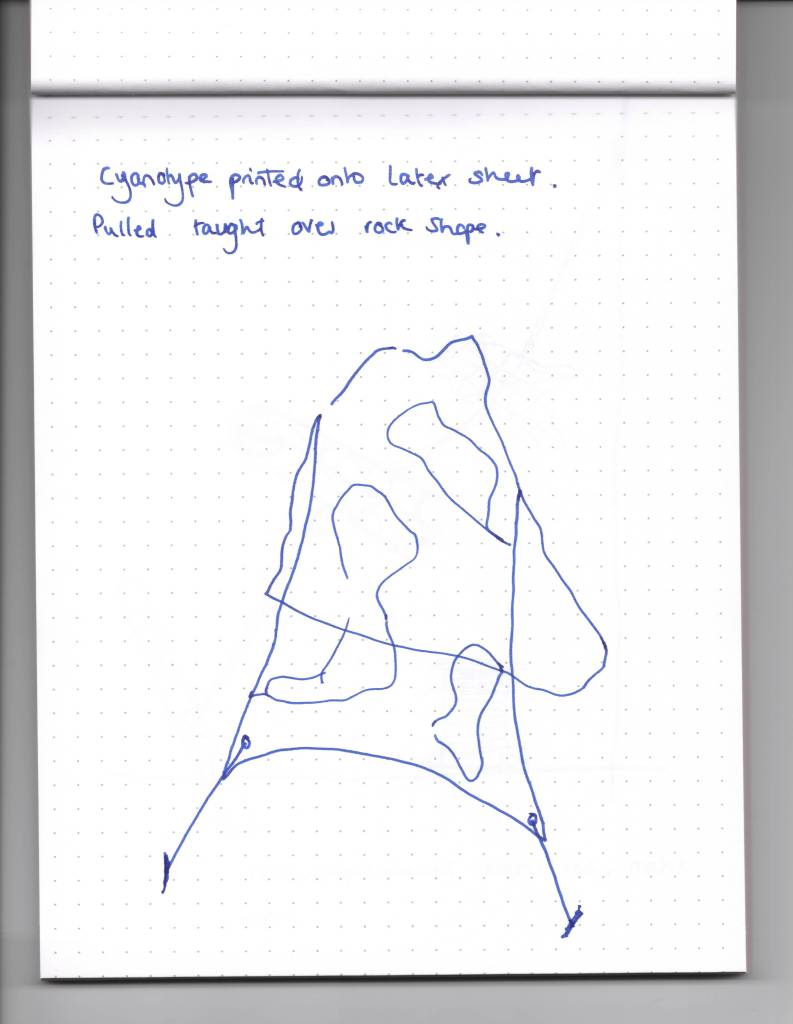 Cyanotype printed onto Latex sheet.
Pulled taught over rock shape.